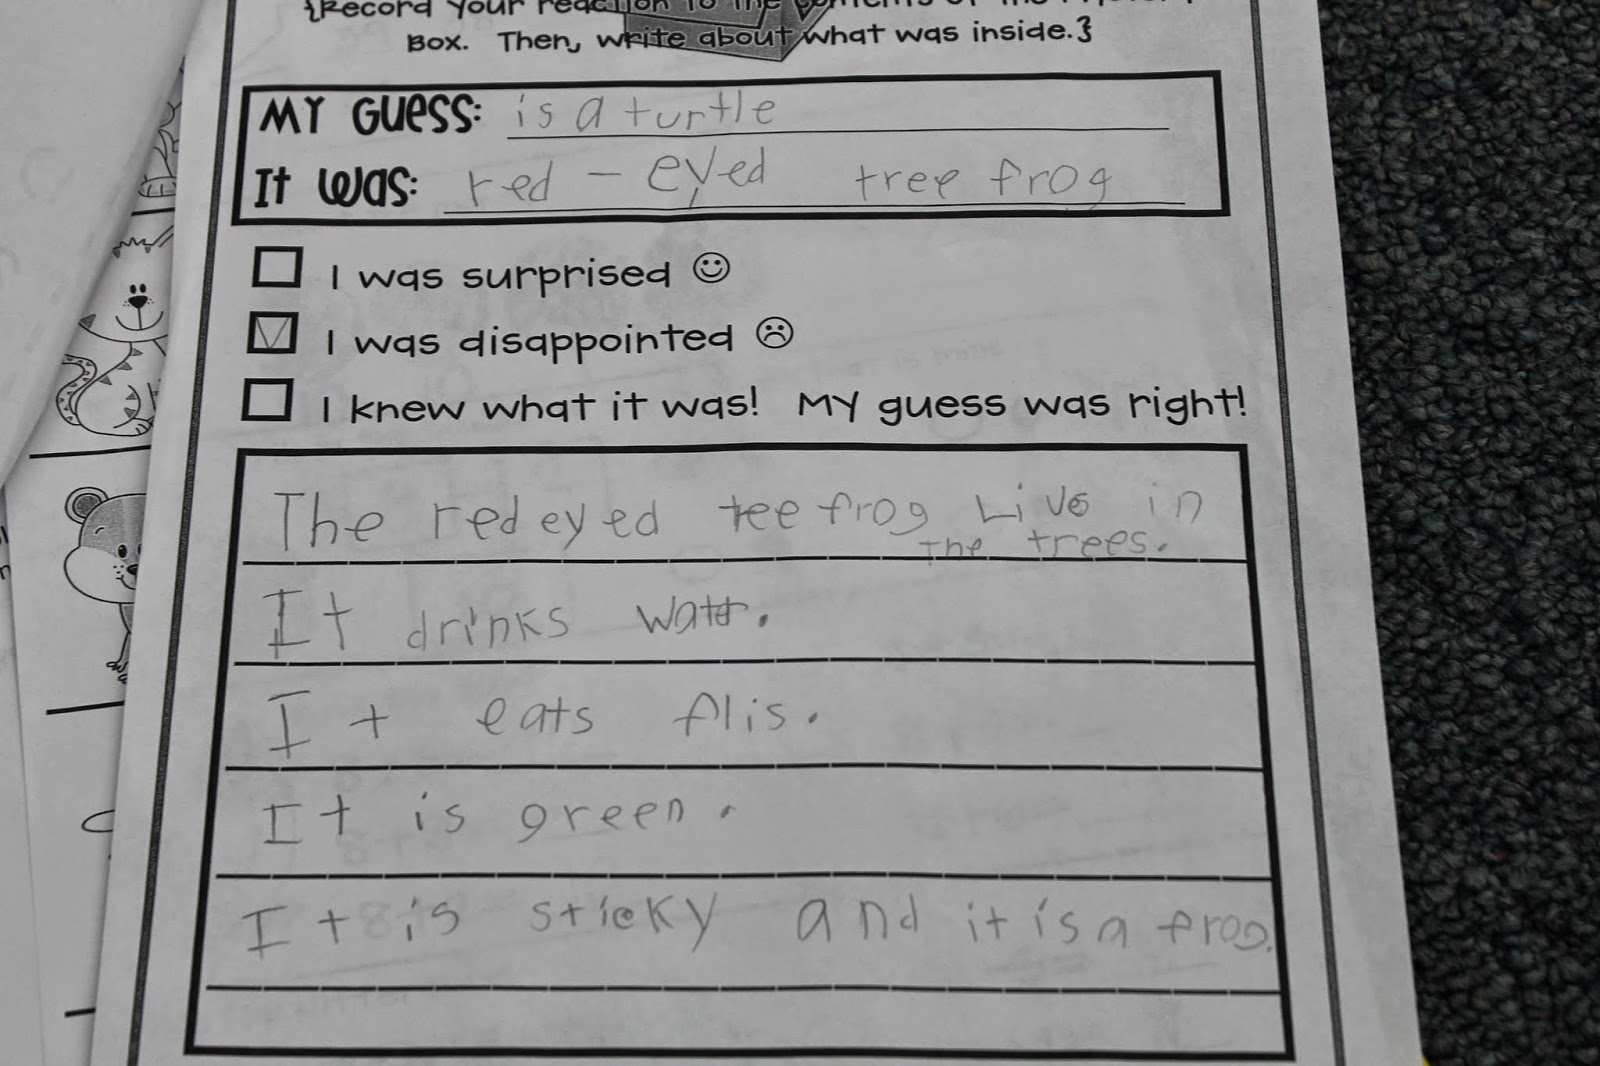 {Record your reaction to the contents of the Mystery
Box. Then, write about what was inside.}
MY GUESS: is a turtle
It was: red - eyed tree frog
I was surprised ☺
I was disappointed ☹
I knew what it was! My guess was right!
The red eyed tee frog Live in
the trees.
It drinks watr.
It eats flis.
It is green.
It is sticky and it is a frog.